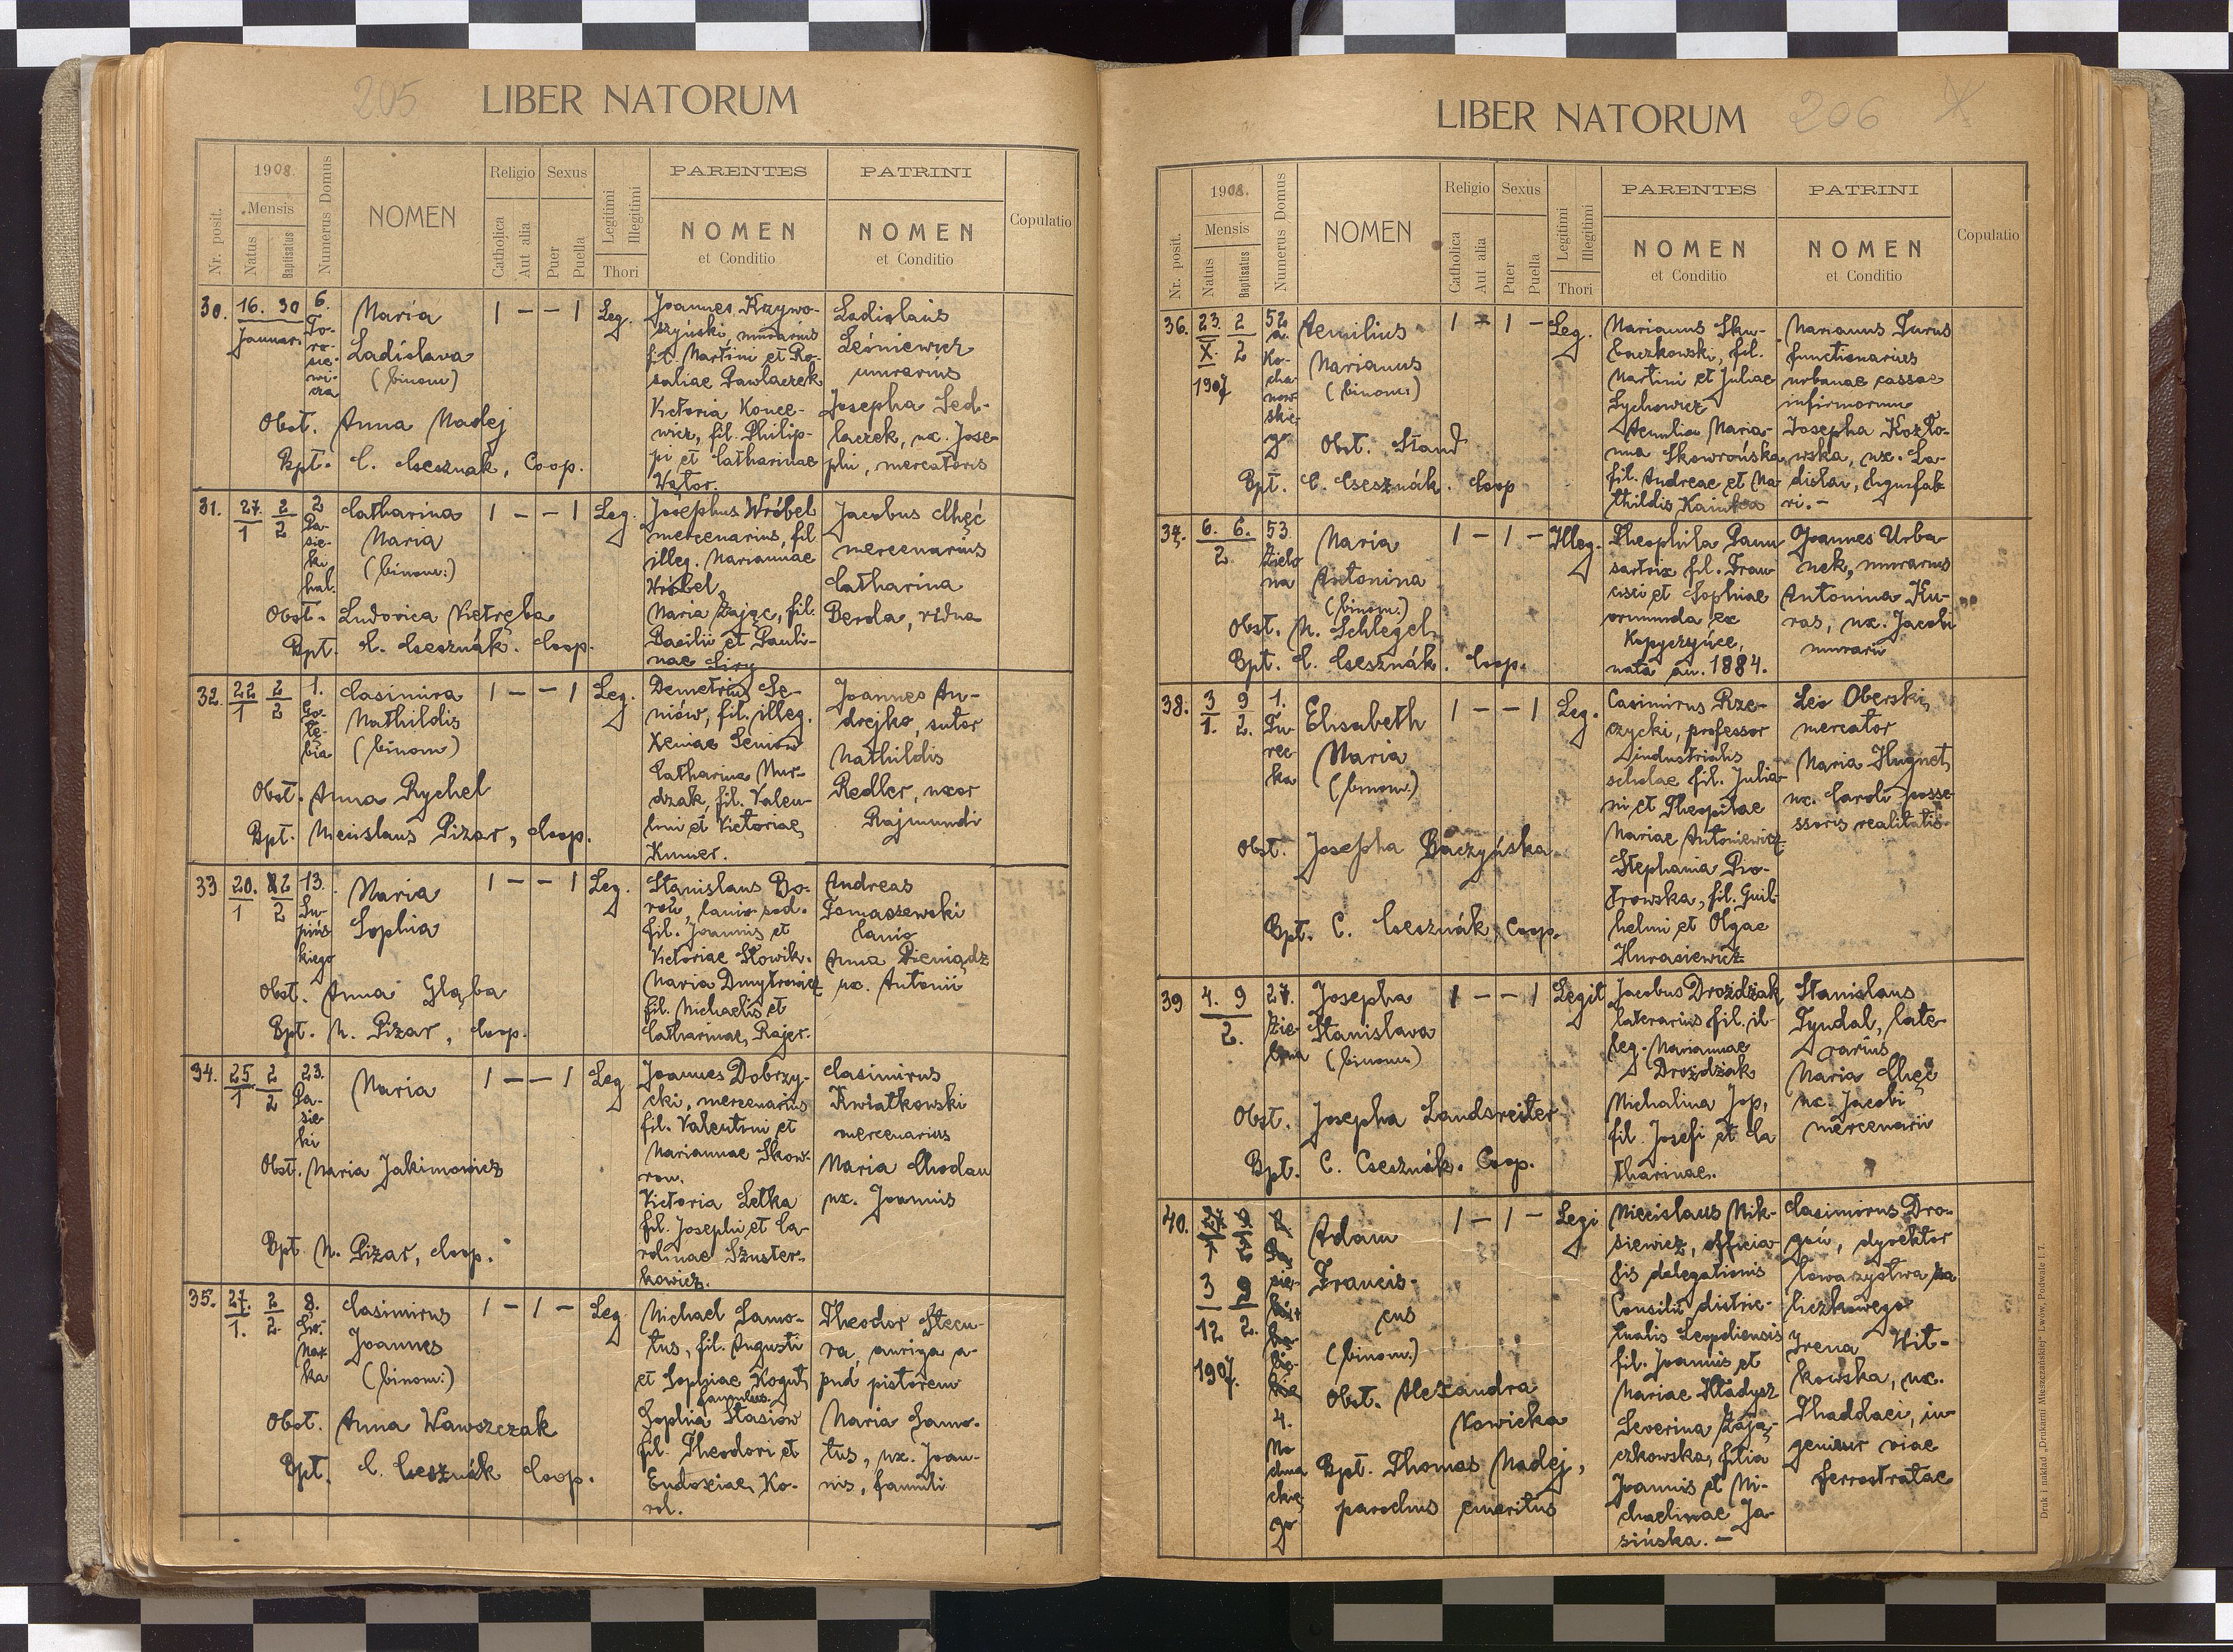 205
LIBER NATORUM
Nr. posit.
1908.
Mensis
Natus
Baptisatus
Numerus Domus
NOMEN
Religio
Catholica
Aut alia
Sexus
Puer
Puella
Legitimi
Illegitimi
Thori
PARENTES
NOMEN
et Conditio
PATRINI
NOMEN
et Conditio
Copulatio
30.
16. 30
Januari
6.
To-
ro-
sie-
wi-
cza
Maria
Ladislava
(binom)
Obst. Anna Madej
Bpt. C. Csesznák, Coop.
1 — — 1
Leg.
Joannes Krzywo-
szyński, murarius
fil. Martini et Ro-
saliae Pawlaczek
Victoria Konce-
wicz, fil. Philip-
pi et Catharinae
Wątor.
Ladislaus
Leśniewicz
murarius
Josepha Sed-
laczek, ux. Jose-
phi, mercatoris
31.
27. 2
1 2
2
Pa-
sie-
ki
hal.
Catharina
Maria
(binom:)
Obst. Ludovica Nietręba
Bpt. C. Csesznák. Coop.
1 — — 1
Leg.
Josephus Wróbel
mercenarius, fil
illeg. Mariannae
Wróbel,
Maria Zając, fil.
Basilii et Pauli-
nae Siry
Jacobus Chęć
mercenarius
Catharina
Berda, vidua
32.
22 2
1 2
1.
Go-
łę-
bia
Casimira
Mathildis
(binom)
Obst. Anna Rychel
Bpt. Miecislaus Pizar, Coop.
1 — — 1
Leg.
Demetrius Se-
niów, fil. illeg.
Xeniae Seniów
Catharina Mur-
dzak, fil. Valen-
tini et Victoriae,
Kumer.
Joannes An-
drejko, sutor
Mathildis
Redler, uxor
Rajmundi
33.
20. 2
1 2
13.
Su-
piń-
skiego
Maria
Sophia
Obst. Anna Głąba
Bpt. M. Pizar, Coop.
1 — — 1
Leg.
Stanislaus Bo-
roń, lanio sod.
fil. Joannis et
Victoriae Słowik.
Maria Dmytrowicz
fil. Michaelis et
Catharinae, Rajer.
Andreas
Tomaszewski
lanio
Anna Pieniądz
ux. Antonii
34.
25 2
1 2
23.
Pa-
sie-
ki
Maria
Obst. Maria Jakimowicz
Bpt. M. Pizar, Coop.
1 — — 1
Leg
Joannes Dobrzy-
cki, mercenarius
fil. Valentini et
Mariannae Skow-
ron.
Victoria Letka
fil. Josephi et Ca-
rolinae Szuster-
kowicz.
Casimirus
Kwiatkowski
mercenarius
Maria Chodau
ux. Joannis
35.
27. 2
1. 2.
8.
ka
Casimirus
Joannes
(binom:)
Obst. Anna Wawszczak
Bpt. C. Csesznák Coop.
1 — 1 —
Leg.
Michael Samo-
tus, fil. Augusti
et Sophiae Kogut,
famulus
Sophia Stasiów
fil. Theodori et
Eudoxiae, Ko-
rol.
Theodor Stecu-
ra, auriga a-
pud pistorem
Maria Samo-
tus, ux. Joan-
nis, famuli
206
LIBER NATORUM
Nr. posit.
1908.
Mensis
Natus
Baptisatus
Numerus Domus
NOMEN
Religio
Catholica
Aut alia
Sexus
Puer
Puella
Legitimi
Illegitimi
Thori
PARENTES
NOMEN
et Conditio
PATRINI
NOMEN
et Conditio
Copulatio
36.
23. 2
X. 2
1907
52
a.
Ko-
cha
now-
skie-
go
Aemilius
Marianus
(binom:)
Obst. Stand
Bpt. C. Csesznák. Coop
1 — 1 —
Leg.
Marianus Sku-
baczkowski, fil.
Martini et Juliae
Lychowicz
Aemilia Maria-
nna Skowrońska,
fil. Andreae et Ma
thildis
Marianus Turus
functionarius
urbanae cassae
infirmorum
Josepha Kozło-
wska, ux. La-
dislai, lignifab
ri. —
37.
6. 6.
2
53.
Zielo
na
Maria
Antonina
(binom:)
Obst. M. Schlegel
Bpt. C. Csesznák. Coop.
1 — 1 —
Illeg.
Theophila Paun
sartrix fil. Fran-
cisci et Sophiae
oriunda ex
Kopyczyńce,
nata an. 1884.
Joannes Urba-
nek, murarius
Antonina Ku-
ras, ux. Jacobi
murarii
38.
3 9
1. 2.
1.
Tu-
rec-
ka
Elisabeth
Maria
(binom.)
Obst. Josepha Baczyńska
Bpt. C. Csesznák, Coop.
1 — — 1
Leg.
Casimirus Rze-
czycki, professor
industrialis
scholae fil. Julia-
ni et Theophilae
Mariae Antoniewicz
Stephania Pio-
trowska, fil. Guil-
helmi et Olgae
Hurasiewicz
Leo Oberski,
mercator
Maria Hugnet,
ux. Caroli posse-
ssoris realitatis.
39
4. 9
2.
27.
Zie-
lona
Josepha
Stanislava
(binom)
Obst. Josepha Landsreiter
Bpt. C. Csesznák. Coop.
1 — — 1
Legit
Jacobus Droździak
laterarius fil. il-
leg. Mariannae
Droździak
Michalina Jop,
fil. Josefi et Ca
tharinae.
Stanislaus
Tyndal, late-
rarius
Maria Chęć
ux. Jacobi
mercenarii
40.
3 9
12 2.
1907.
4.
Mo
chna
ckie
go
Adam
Francis-
cus
(binom.)
Obst. Alexandra
Nowicka
Bpt. Thomas Madej,
parochus emeritus
1 — 1 —
Legi
Miecislaus Mik-
siewicz, officia-
lis delegationis
Consilii distric-
tualis Leopoliensis
fil. Joannis et
Mariae Hładysz
Severina Zają-
czkowska, filia
Joannis et Mi-
chaelinae Ja-
sińska. —
Casimirus Dro-
goń, dyrektor
Towarzystwa za
liczkowego
Irena Wit-
kowska, ux.
Thaddaei, in-
genieur viae
ferrostratae
Druk i nakład „Drukarni Mieszczańskiej" Lwów, Podwale l. 7.